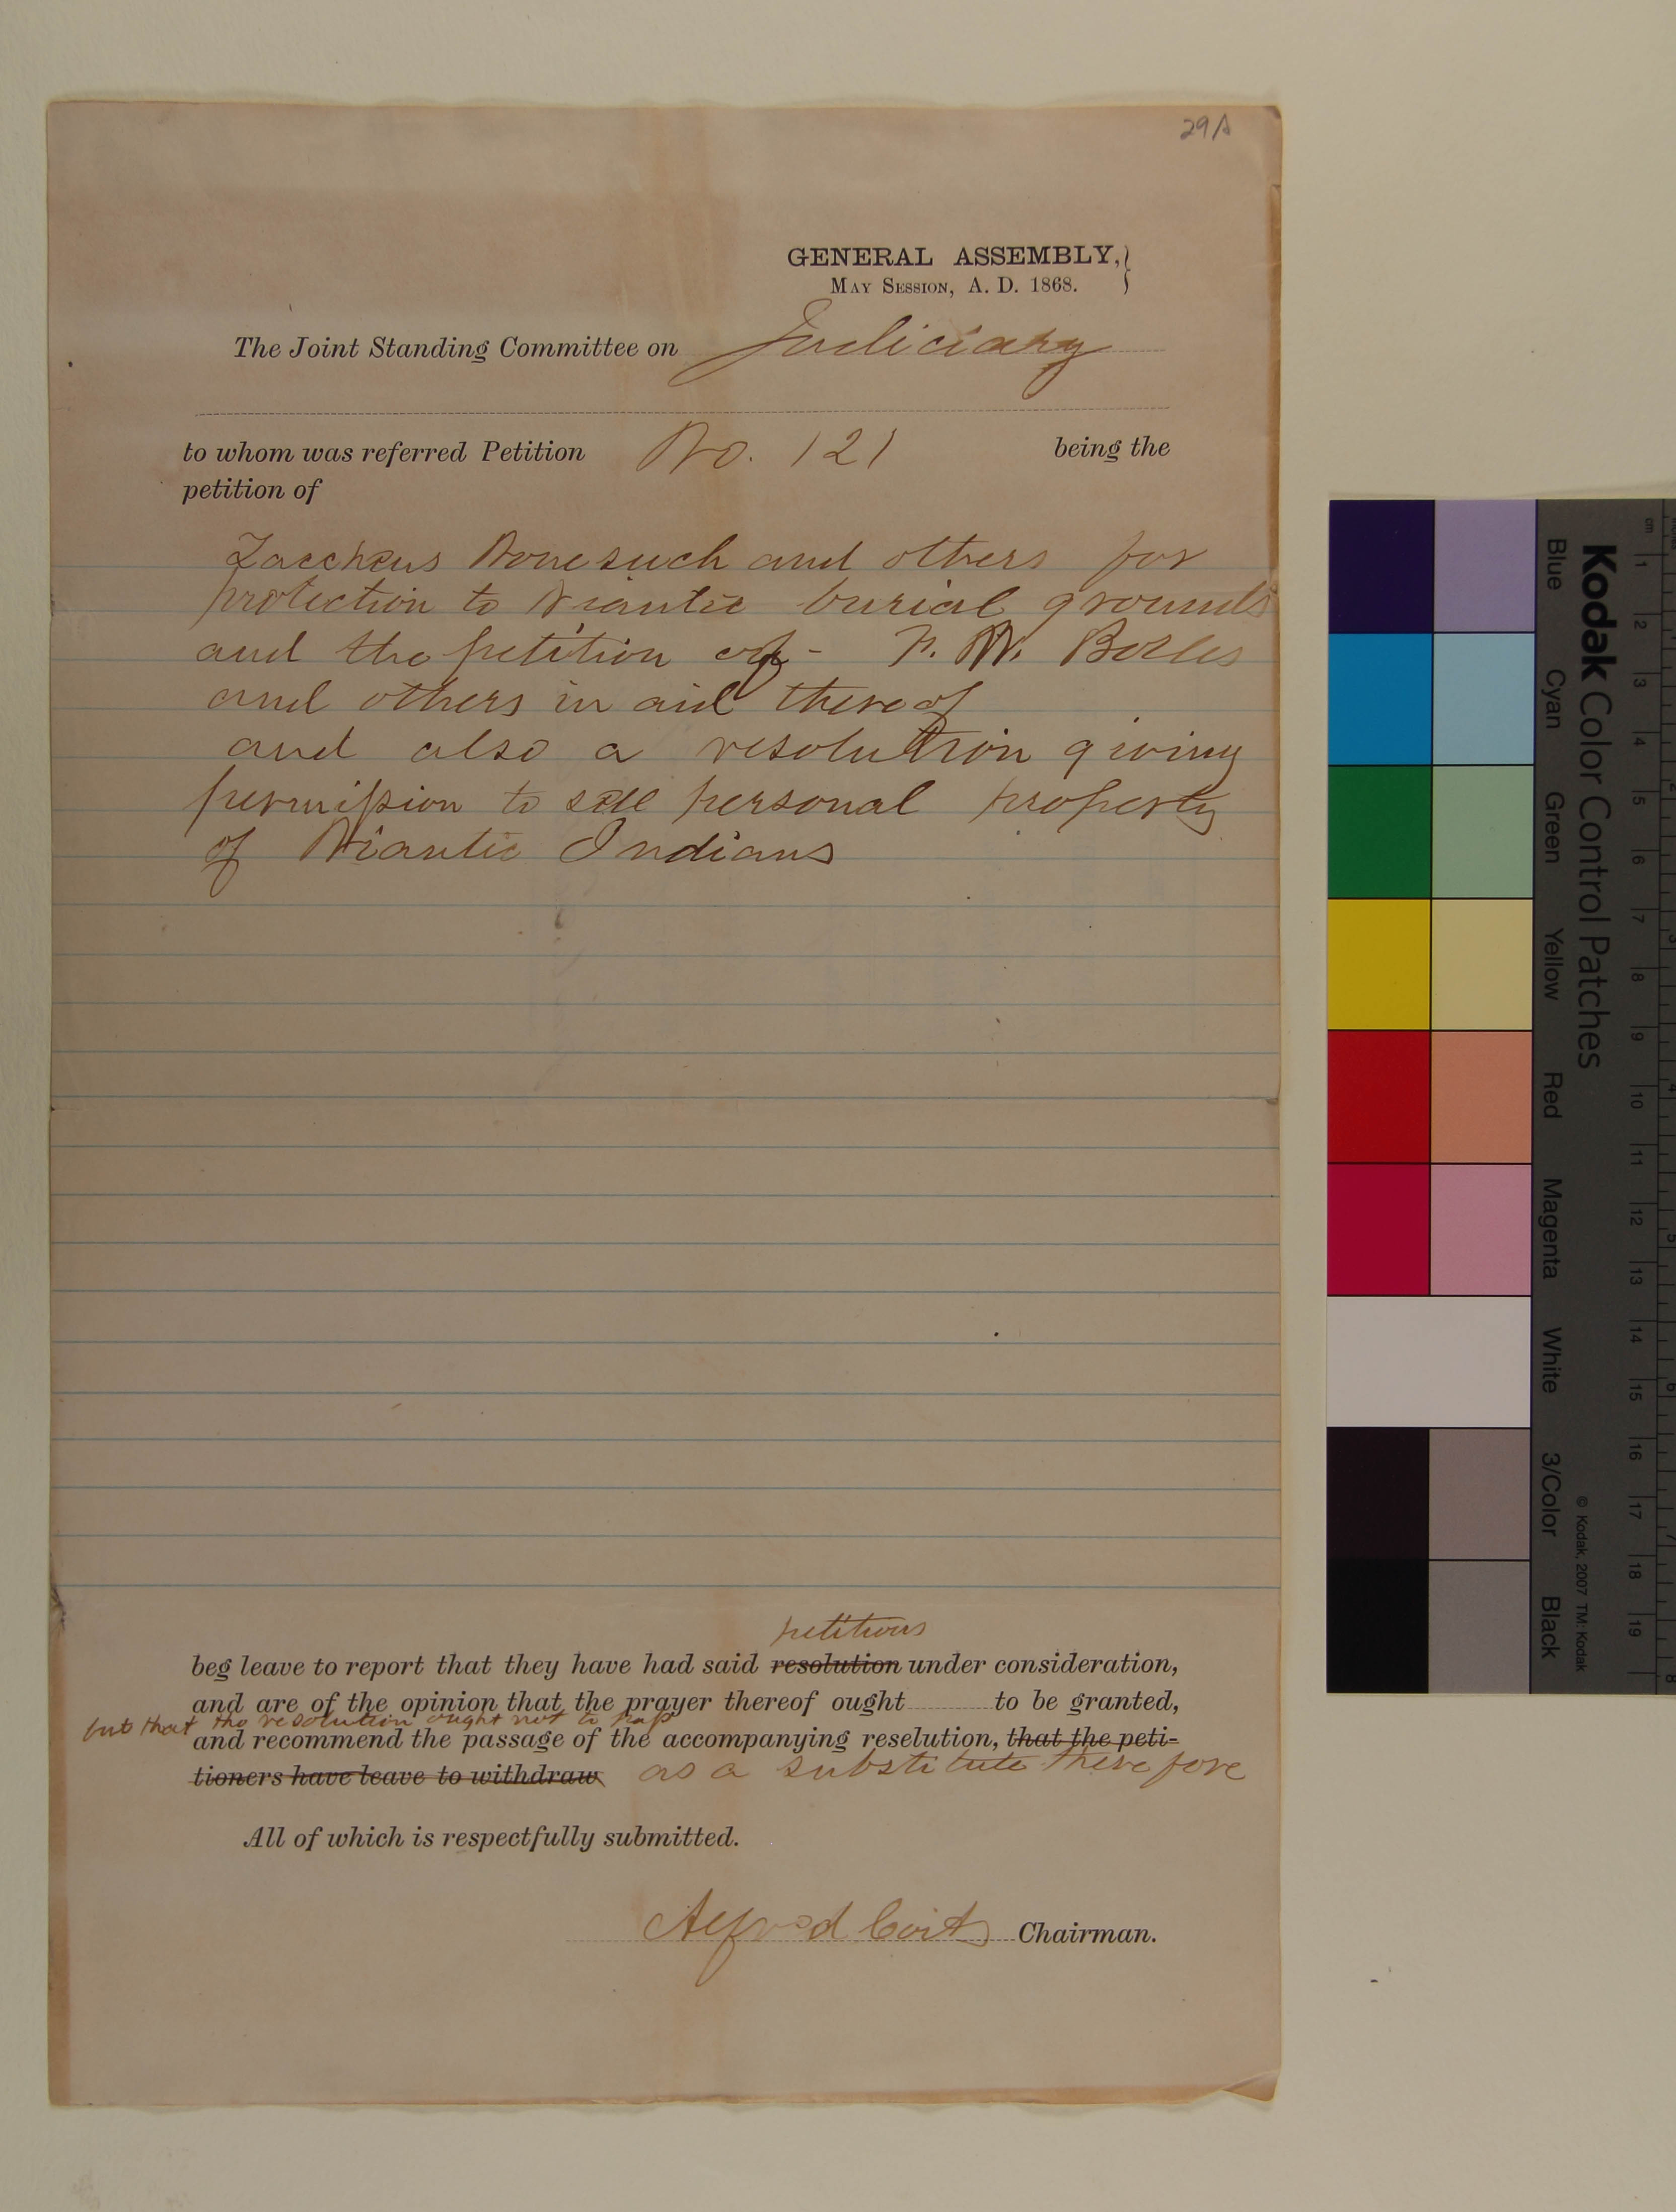 29A
GENERAL ASSEMBLY,}
MAY SESSION, A. D. 1868.
The Joint Standing Committee on Judiciary
to whom was referred Petition No. 121 being the
petition of
Zaccheus Nonesuch and others for
protection to Niantic burial grounds
and the petition of - F. W. Bolles
and others in aid thereof
and also a resolution giving
permission to sell personal property
of Niantic Indians
petitions
beg leave to report that they have had said resolution under consideration,
and are of the opinion that the prayer thereof ought to be granted,
but that the resolution ought not to pass
and recommend the passage of the accompanying reselution, that the peti-
tioners have leave to withdraw as a substitute therefore
All of which is respectfully submitted.
Alfred Coit Chairman.
Kodak Color Control Patches
Blue Cyan Green Yellow Red Magenta White 3/Color Black
© Kodak, 2007 TM: Kodak
cm 1 2 3 4 5 6 7 8 9 10 11 12 13 14 15 16 17 18 19